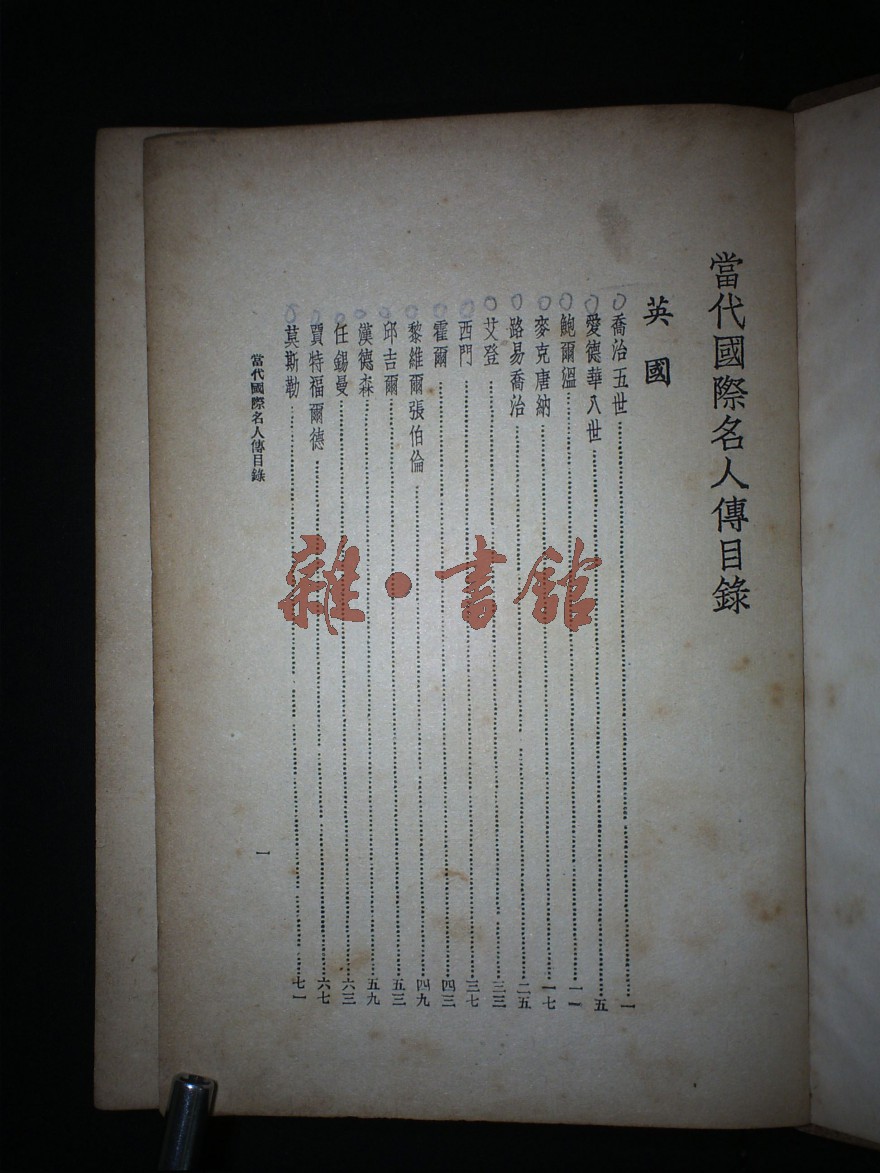 當代國際名人傳目錄
英國
喬治五世……一
愛德華八世……五
鮑爾溫……一一
麥克唐納……一七
路易喬治……二五
艾登……三三
西門……三七
霍爾……四三
黎維爾張伯倫……四九
邱吉爾……五三
漢德森……五九
任錫曼……六三
賈特福爾德……六七
莫斯勒……七一
當代國際名人傳目錄
一
雜·書館